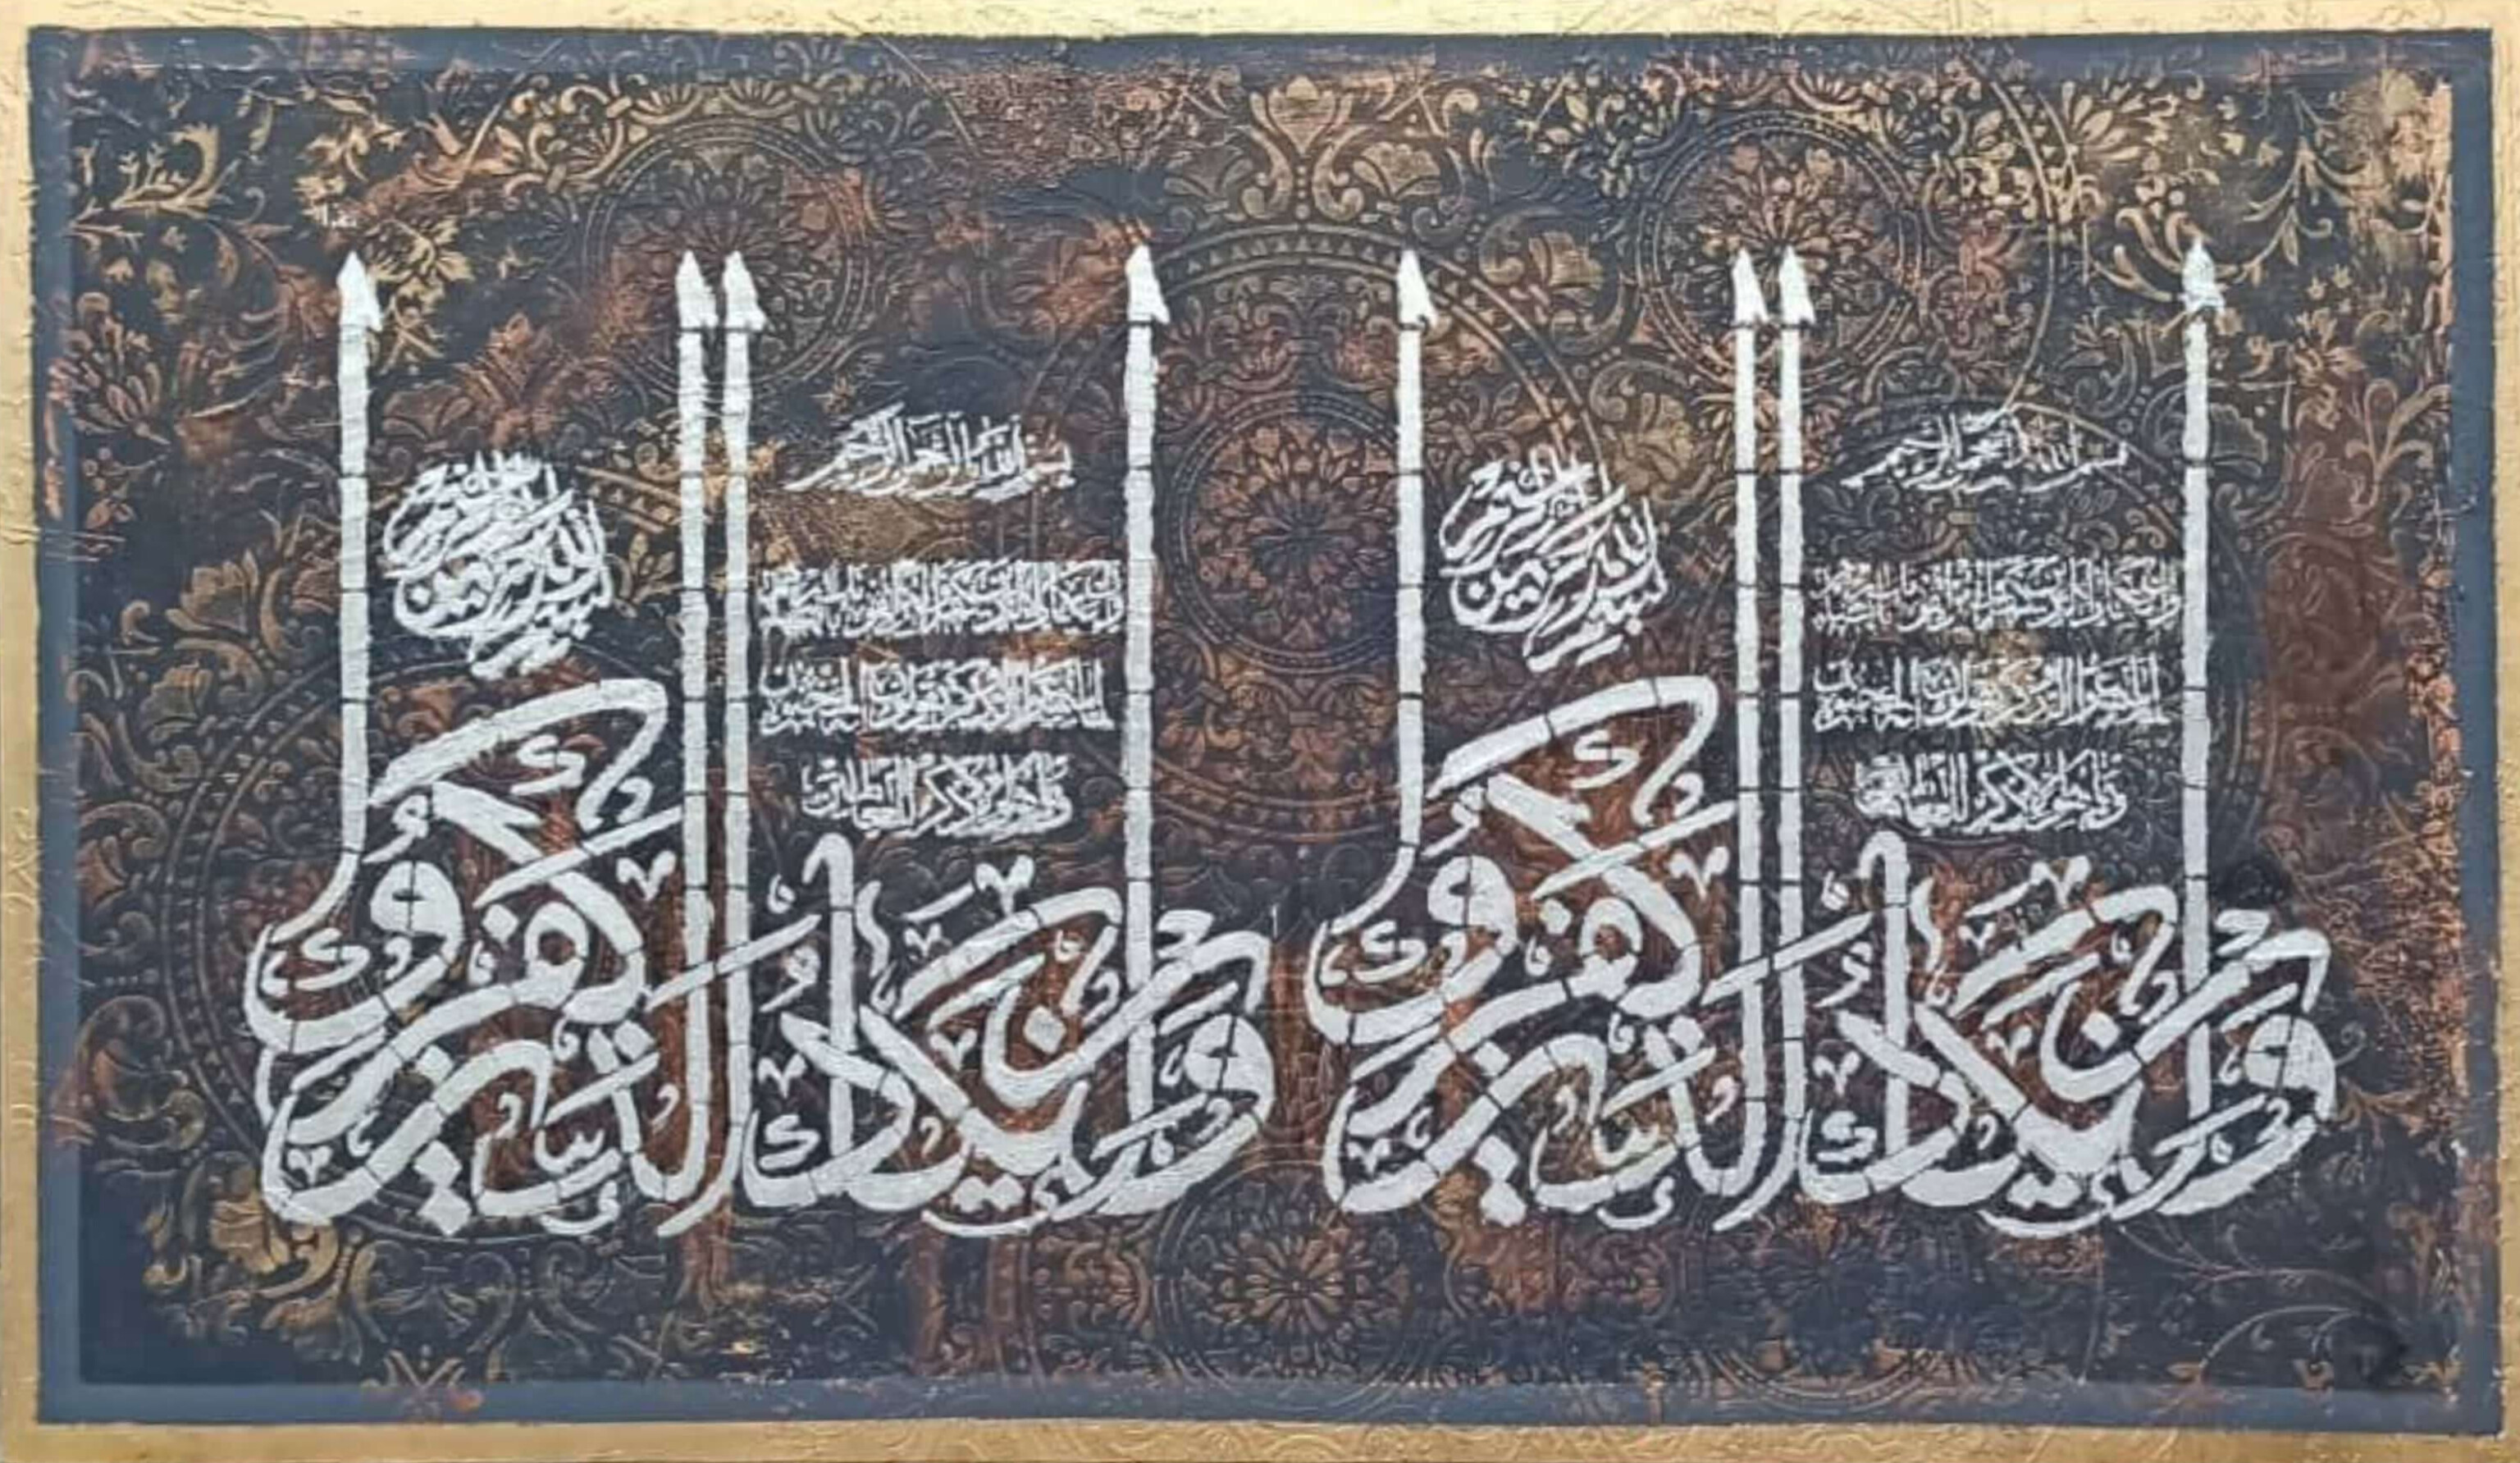 بسم الله الرحمن الرحيم
وإن يكاد الذين كفروا ليزلقونك بأبصارهم
لما سمعوا الذكر ويقولون إنه لمجنون
وما هو إلا ذكر للعالمين
وإن يكاد الذين كفروا
بسم الله الرحمن الرحيم
وإن يكاد الذين كفروا ليزلقونك بأبصارهم
لما سمعوا الذكر ويقولون إنه لمجنون
وما هو إلا ذكر للعالمين
وإن يكاد الذين كفروا